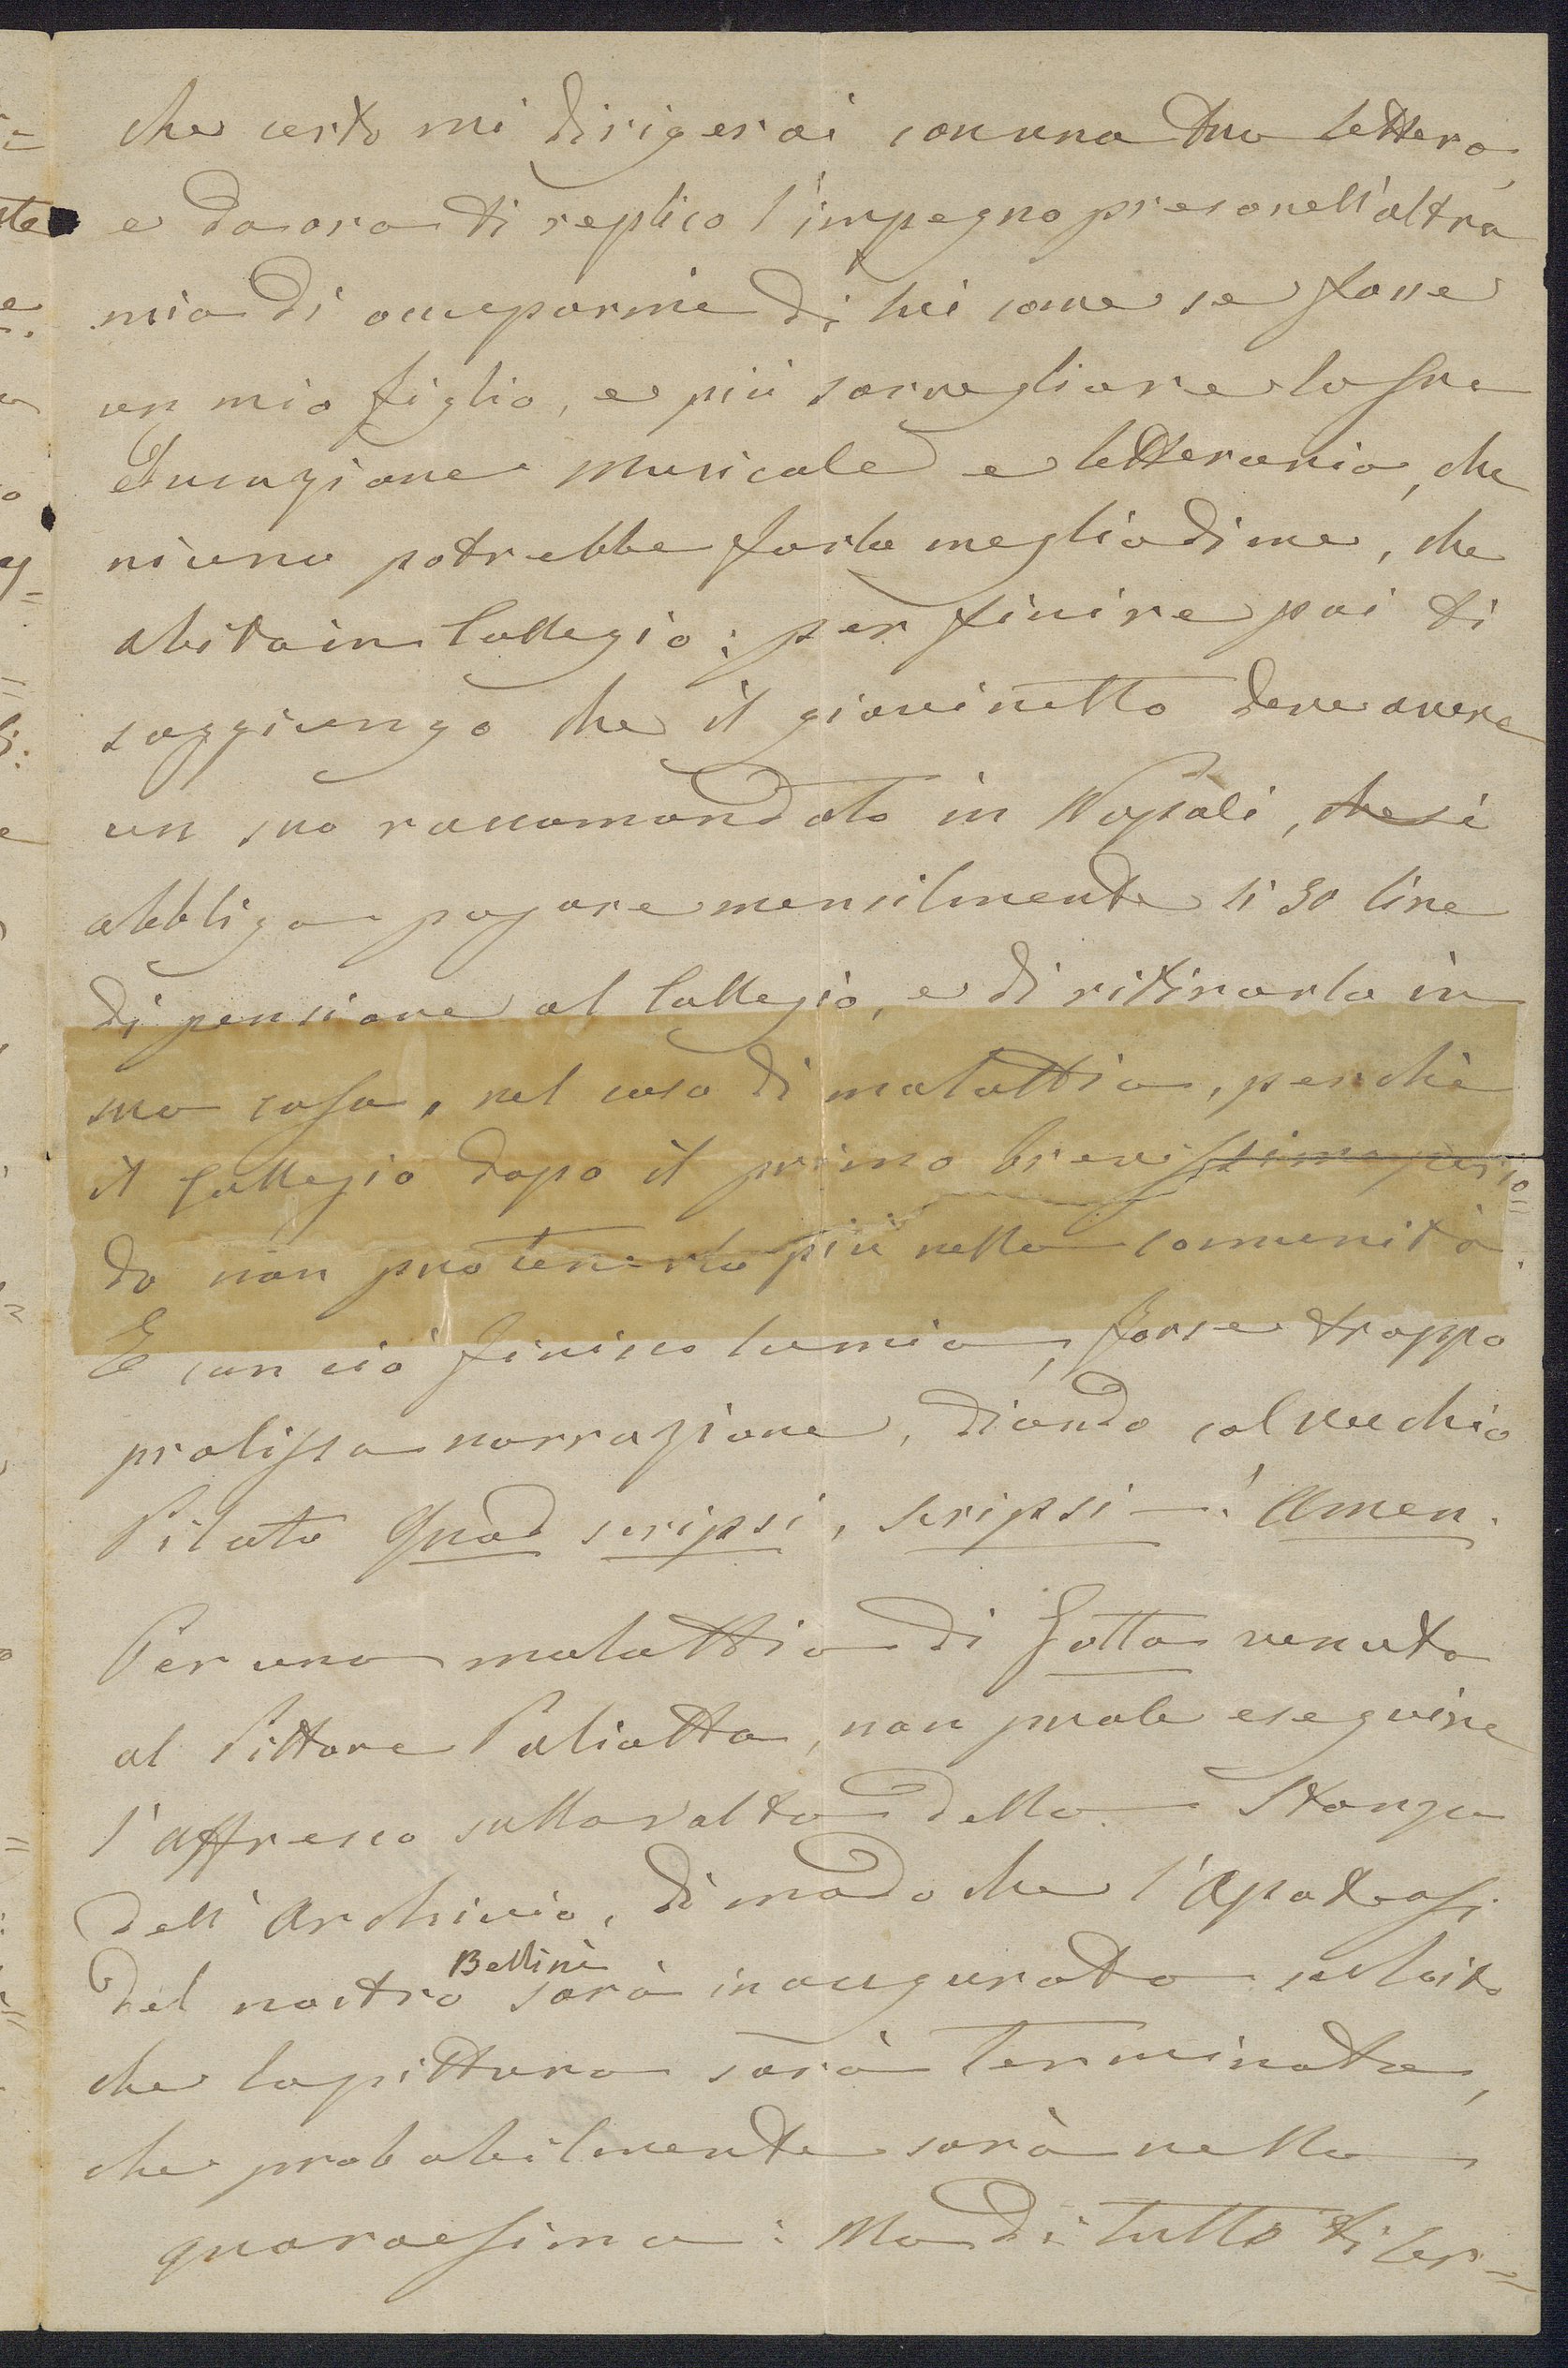 che certo mi dirigerai con una tua lettera,
e da ora ti replico l'impegno preso nell'altra
mia di occuparmi di lui come se fosse
un mio figlio, e più sorvegliare la sua
Educazione musicale e letteraria, che
niuno potrebbe farlo meglio di me, che
abito in Collegio: per finire poi ti
soggiungo che il giovinetto deve avere
un suo raccomandato in Napoli, che si
obbliga pagare mensilmente li 30 lire
di pensione al Collegio, e di ritirarlo in
sua casa, nel caso di malattia, perchè
il Collegio dopo il primo brevissimo perio=
do non può tenerlo più nella comunità.
E con ciò finisco la mia, forse troppo
prolissa narrazione, dicendo col vecchio
Pilato Quod scripsi, scripsi —! Amen.
Per una malattia di Gotta venuta
al Pittore Paliotta, non potè eseguire
l'affresco sulla volta della Stanza
dell'Archivio, di modo che l'Apoteosi
del nostro Bellini sarà inaugurata subito
che la pittura sarà terminata,
che probabilmente sarà nella
quaraesima: Ma di tutto ti ter=